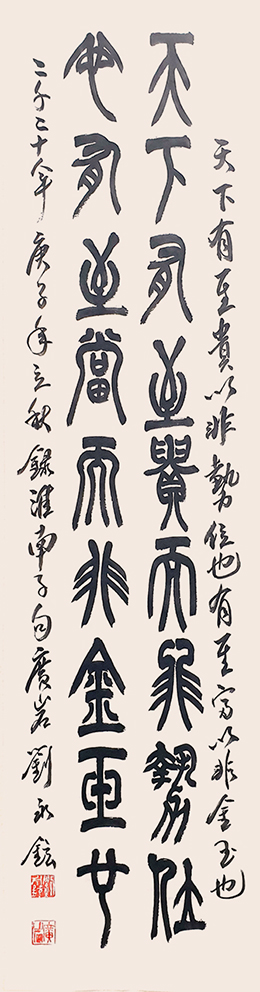 天下有至貴以非勢位也有至富以非金玉也
天下有至貴而非勢位
也有至富而非金玉也
二千二十年庚子年立秋錄淮南子句廣岩劉永鋐